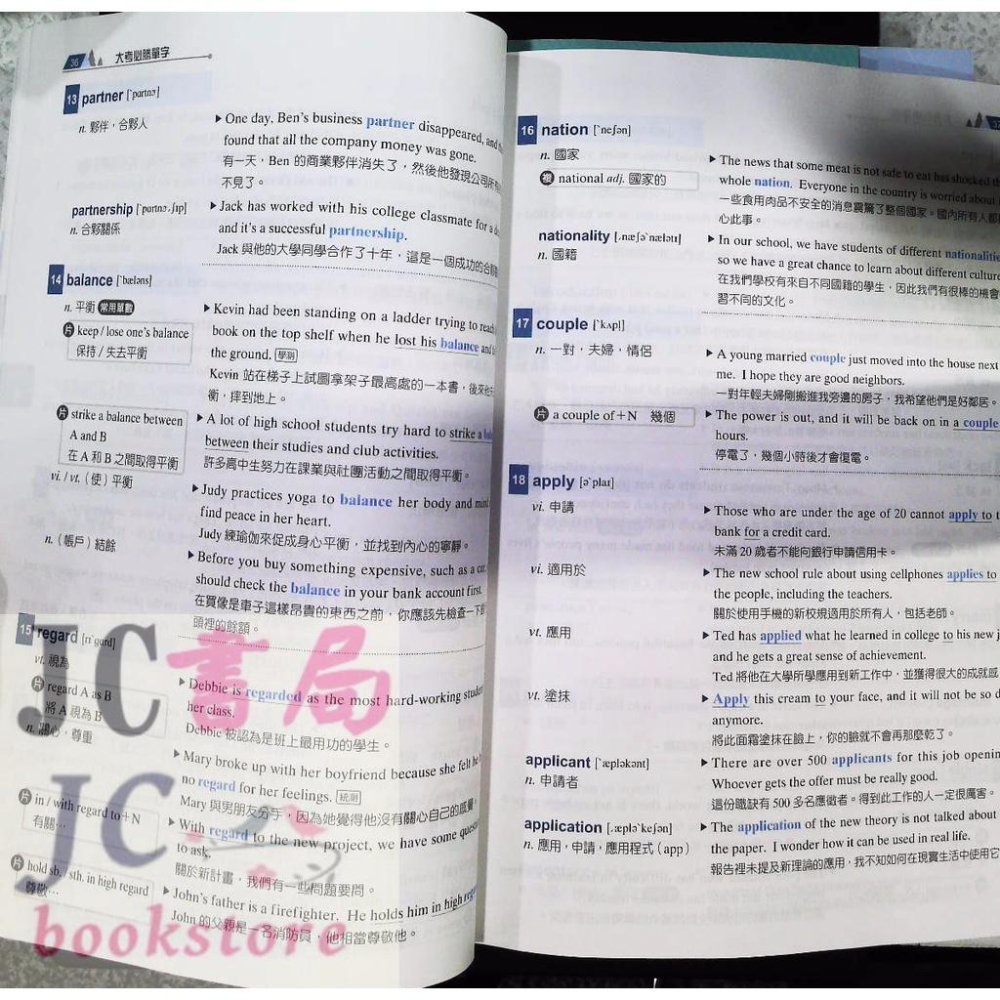 36 大考必勝單字
13 partner [ˋpɑrtnɚ]
n. 夥伴，合夥人
▶ One day, Ben's business partner disappeared, and
found that all the company money was gone.
有一天，Ben 的商業夥伴消失了，然後他發現公司所
不見了。
partnership [ˋpɑrtnɚˏʃɪp]
n. 合夥關係
▶ Jack has worked with his college classmate for a
and it's a successful partnership.
Jack 與他的大學同學合作了十年，這是一個成功的合夥
14 balance [ˋbæləns]
n. 平衡 常用單數
片 keep / lose one's balance
保持 / 失去平衡
▶ Kevin had been standing on a ladder trying to reach
book on the top shelf when he lost his balance and
the ground. 學測
Kevin 站在梯子上試圖拿架子最高處的一本書，後來他
衡，摔到地上。
片 strike a balance between
A and B
在 A 和 B 之間取得平衡
▶ A lot of high school students try hard to strike a
between their studies and club activities.
許多高中生努力在課業與社團活動之間取得平衡。
vi. / vt.（使）平衡
▶ Judy practices yoga to balance her body and mind
find peace in her heart.
Judy 練瑜伽來促成身心平衡，並找到內心的寧靜。
n.（帳戶）結餘
▶ Before you buy something expensive, such as a car,
should check the balance in your bank account first.
在買像是車子這樣昂貴的東西之前，你應該先檢查一下
頭裡的餘額。
15 regard [rɪˋgɑrd]
vt. 視為
片 regard A as B
將 A 視為 B
▶ Debbie is regarded as the most hard-working student
her class.
Debbie 被認為是班上最用功的學生。
n. 關心，尊重
▶ Mary broke up with her boyfriend because she felt he
no regard for her feelings. 統測
Mary 與男朋友分手，因為她覺得他沒有關心自己的感覺。
片 in / with regard to＋N
有關…
▶ With regard to the new project, we have some questions
to ask.
關於新計畫，我們有一些問題要問。
片 hold sb. / sth. in high regard
尊敬…
▶ John's father is a firefighter. He holds him in high
John 的父親是一名消防員，他相當尊敬他。
16 nation [ˋneʃən]
n. 國家
複 national adj. 國家的
▶ The news that some meat is not safe to eat has shocked the
whole nation. Everyone in the country is worried about
一些食用肉品不安全的消息震驚了整個國家。國內所有人都
心此事。
nationality [ˏnæʃəˋnælətɪ]
n. 國籍
▶ In our school, we have students of different nationalities
so we have a great chance to learn about different cultures
在我們學校有來自不同國籍的學生，因此我們有很棒的機會
習不同的文化。
17 couple [ˋkʌpl]
n. 一對，夫婦，情侶
▶ A young married couple just moved into the house next
me. I hope they are good neighbors.
一對年輕夫婦剛搬進我旁邊的房子，我希望他們是好鄰居。
片 a couple of＋N 幾個
▶ The power is out, and it will be back on in a couple
hours.
停電了，幾個小時後才會復電。
18 apply [əˋplaɪ]
vi. 申請
▶ Those who are under the age of 20 cannot apply to
bank for a credit card.
未滿 20 歲者不能向銀行申請信用卡。
vi. 適用於
▶ The new school rule about using cellphones applies to
the people, including the teachers.
關於使用手機的新校規適用於所有人，包括老師。
vt. 應用
▶ Ted has applied what he learned in college to his new
and he gets a great sense of achievement.
Ted 將他在大學所學應用到新工作中，並獲得很大的成就感
vt. 塗抹
▶ Apply this cream to your face, and it will not be so
anymore.
將此面霜塗抹在臉上，你的臉就不會再那麼乾了。
applicant [ˋæpləkənt]
n. 申請者
▶ There are over 500 applicants for this job opening
Whoever gets the offer must be really good.
這份職缺有 500 多名應徵者。得到此工作的人一定很厲害。
application [ˏæpləˋkeʃən]
n. 應用，申請，應用程式（app）
▶ The application of the new theory is not talked about
the paper. I wonder how it can be used in real life.
報告裡未提及新理論的應用，我不知如何在現實生活中使用它
JC書局
JC
bookstore